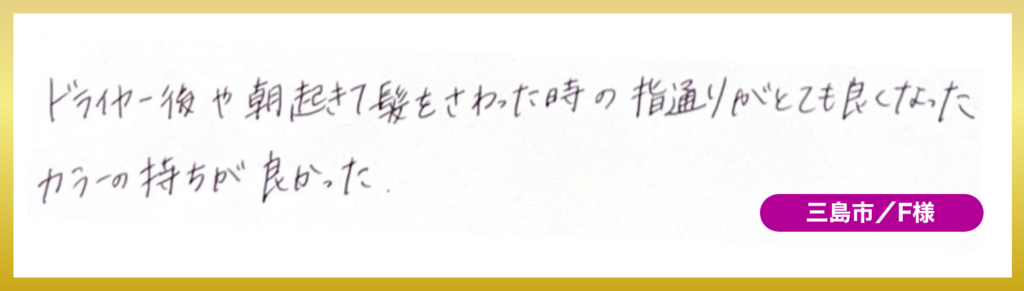 ドライヤー後や朝起きて髪をさわった時の指通りがとても良くなった
カラーの持ちが良かった.
三島市／F様